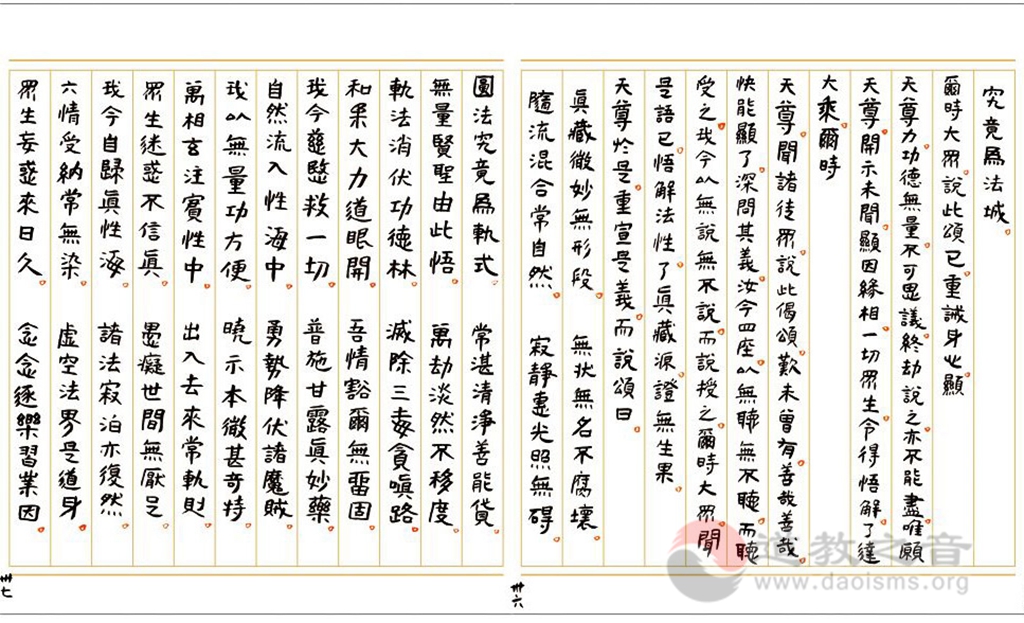 究竟爲法城。
爾時大眾。說此頌已。重誠身心。顯
天尊力。功德無量。不可思議。終劫說之。亦不能盡。唯願
天尊。開示未聞。顯因緣相。一切眾生。令得悟解。了達
大乘。爾時
天尊。聞諸徒眾。說此偈頌。歎未曾有。善哉善哉。
快能顯了。深問其義。汝今四座。以無聽無不聽。而聽
受之。我今以無說無不說。而說授之。爾時大眾。聞
是語已。悟解法性。了眞藏源。證無生果。
天尊於是。重宣是義。而說頌曰。
眞藏微妙無形段。 無狀無名不腐壞。
隨流混合常自然。 寂靜惠光照無碍。
卅六
圓法究竟爲軌式。 常湛清淨善能貸。
無量賢聖由此悟。 萬劫淡然不移度。
軌法消伏功德林。 滅除三毒貪嗔路。
和柔大力道眼開。 吾情豁爾無畱固。
我今慈愍救一切。 普施甘露眞妙藥。
自然流入性海中。 勇勢降伏諸魔賊。
我以無量功方便。 曉示本微甚奇特。
萬相玄注實性中。 出入去來常軌則。
眾生迷惑不信眞。 愚癡世間無厭足。
我今自歸眞性海。 諸法寂泊亦復然。
六情受納常無染。 虛空法界是道身。
眾生妄惑來日久。 念念逐樂習業因。
卅七
道教之音
www.daoisms.org